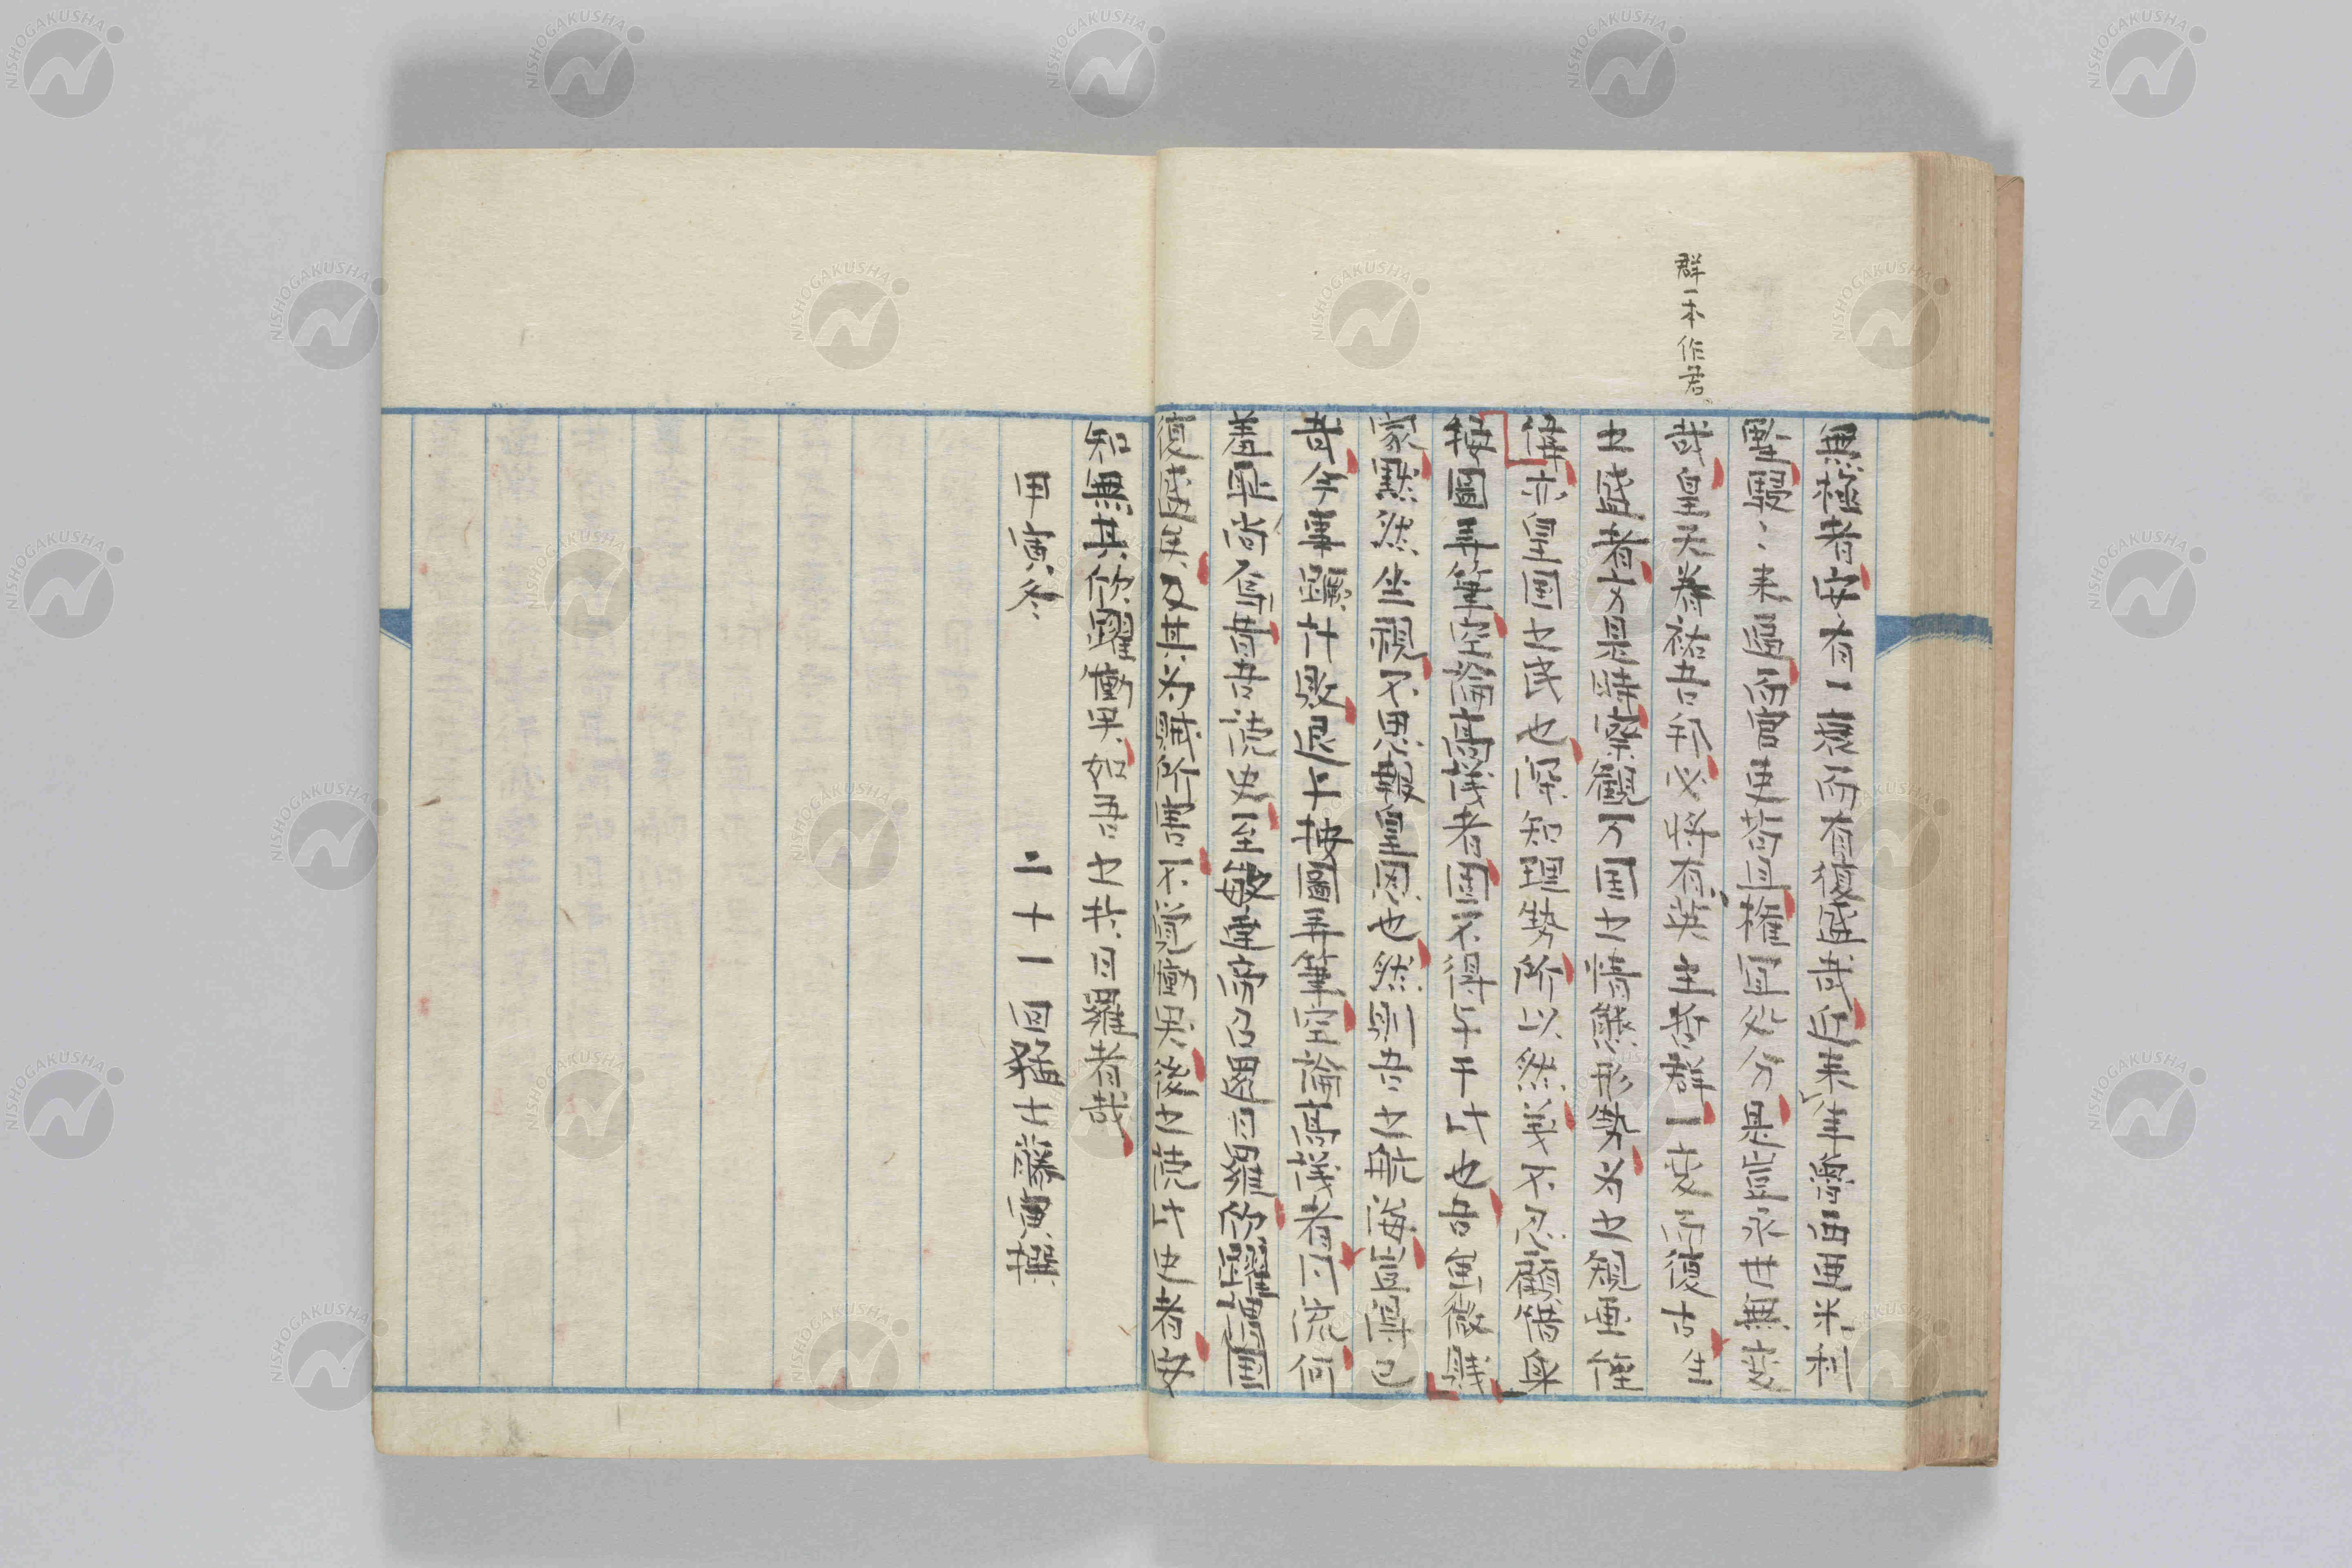 群一本作君
無極者安有一衰而有復盛哉近来羊夷由亜米利
墨駸々来逼而官吏苟且権宜処分是豈永世無変
哉皇天眷祐吾邦必将有英主哲群一変而復古生
之盛者方是時察観万国之情態形勢為之規画経
営亦皇国之民也深知理勢所以然義不忍顧惜身
按圖弄筆空論高議者固不得与于此也吾雖微賎
家默然坐視不思報皇恩也然則吾之航海豈得已
哉今事蹶計敗退乎按圖弄筆空論高議者同流何
羞辱尚焉嘗吾読史至敏達帝召還日羅欣躍謂国
復盛矣及其為賊所害不覚慟哭後之読此史者安
知無其欣躍慟哭如吾之於日羅者哉
甲寅冬　二十一回猛士藤寅撰
NISHOGAKUSHA